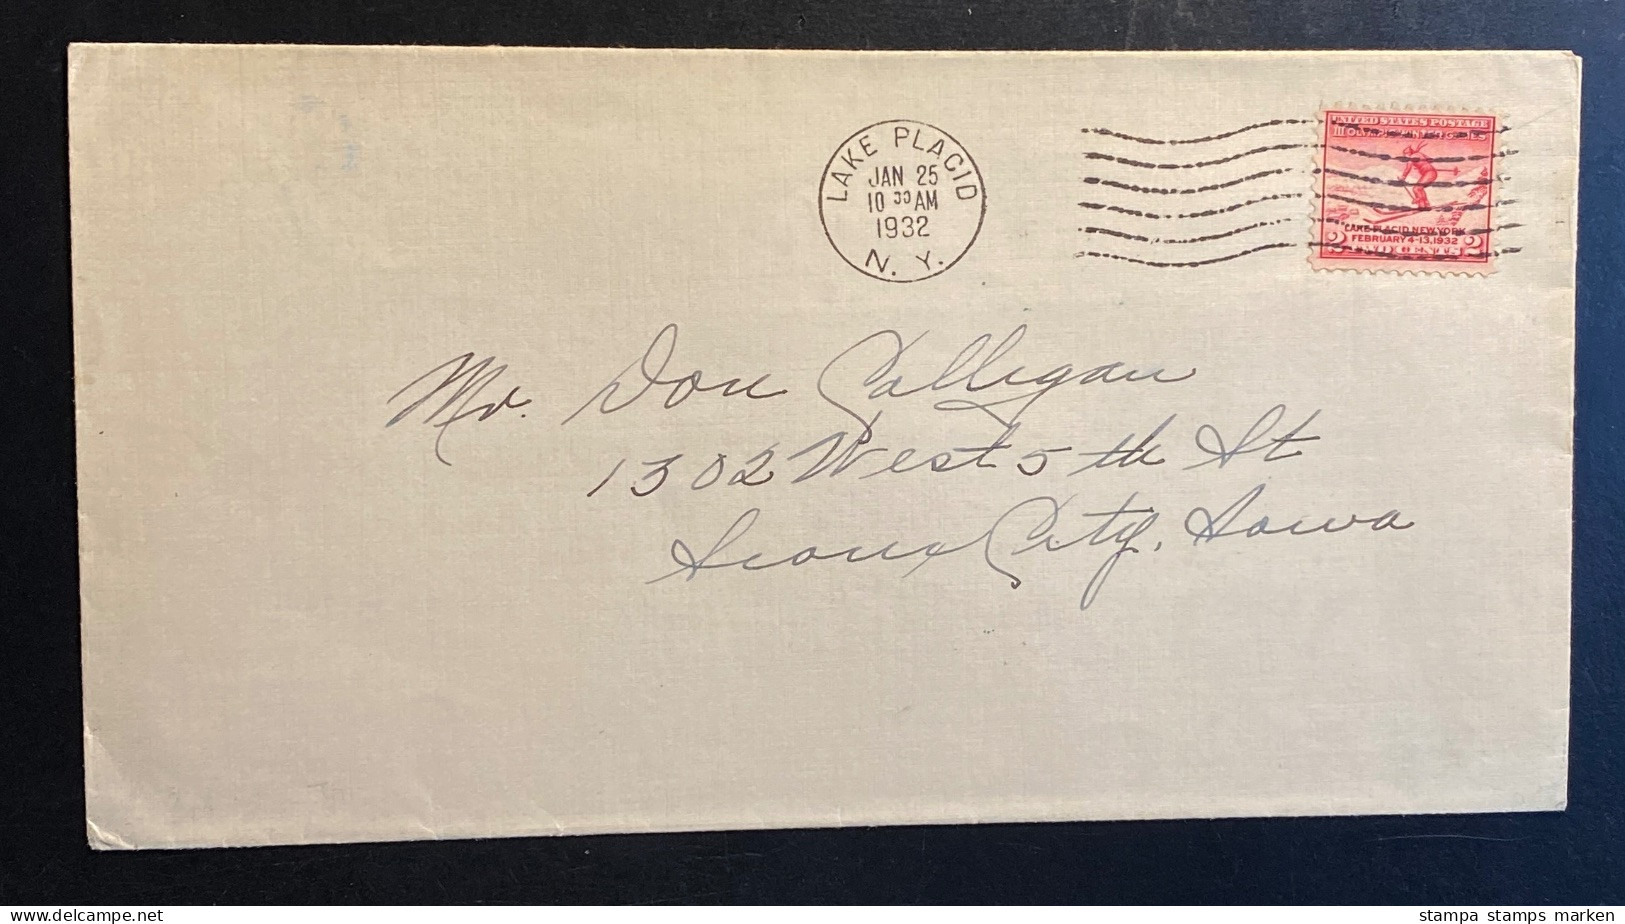 LAKE PLACID
JAN 25
10 30 AM
1932
N. Y.
UNITED STATES POSTAGE
LAKE PLACID, NEW YORK
FEBRUARY 4-13, 1932
2 CENTS 2
Mr. Don Calligan
1302 West 5th St
Sioux City, Iowa
www.delcampe.net
stampa stamps marken